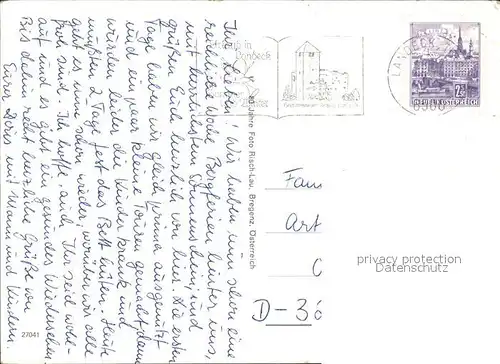 Ihr Lieben! Wir haben nun schon eine
reichliche Woche Bergferien hinter uns,
mit herrlichstem Sonnenschein, und
grüßen Euch herzlich von hier. Die ersten
Tage haben wir gleich prima ausgenutzt
und ein paar kleine Touren gemacht, dann
wurden leider die Kinder krank und
mußten 2 Tage fest das Bett hüten. Heute
geht es ihnen schon wieder, worüber wir alle
froh sind. Ich hoffe, auch Ihr seid wohl-
auf und es gibt ein gesundes Wiedersehen.
Bis dahin recht herzliche Grüße von
Eurer Doris mit Mann und Kindern.
27041
Foto Risch-Lau, Bregenz, Österreich
in
Landeck
Winter
LANDECK
6500
2.50
REPUBLIK ÖSTERREICH
Fam
Art
D-36
privacy protection
Datenschutz